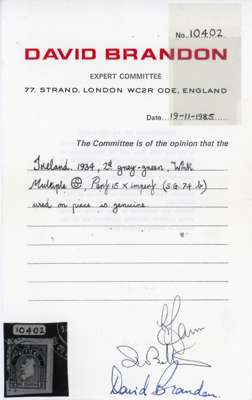 No. 10402
DAVID BRANDON
EXPERT COMMITTEE
77, STRAND, LONDON WC2R ODE, ENGLAND
Date. 19-11-1985
The Committee is of the opinion that the
Ireland. 1934, 2d grey-green, Wmk
Multiple e, Perf 15 x imperf (S.G. 74 b)
used on piece is genuine.
10402
David Brandon